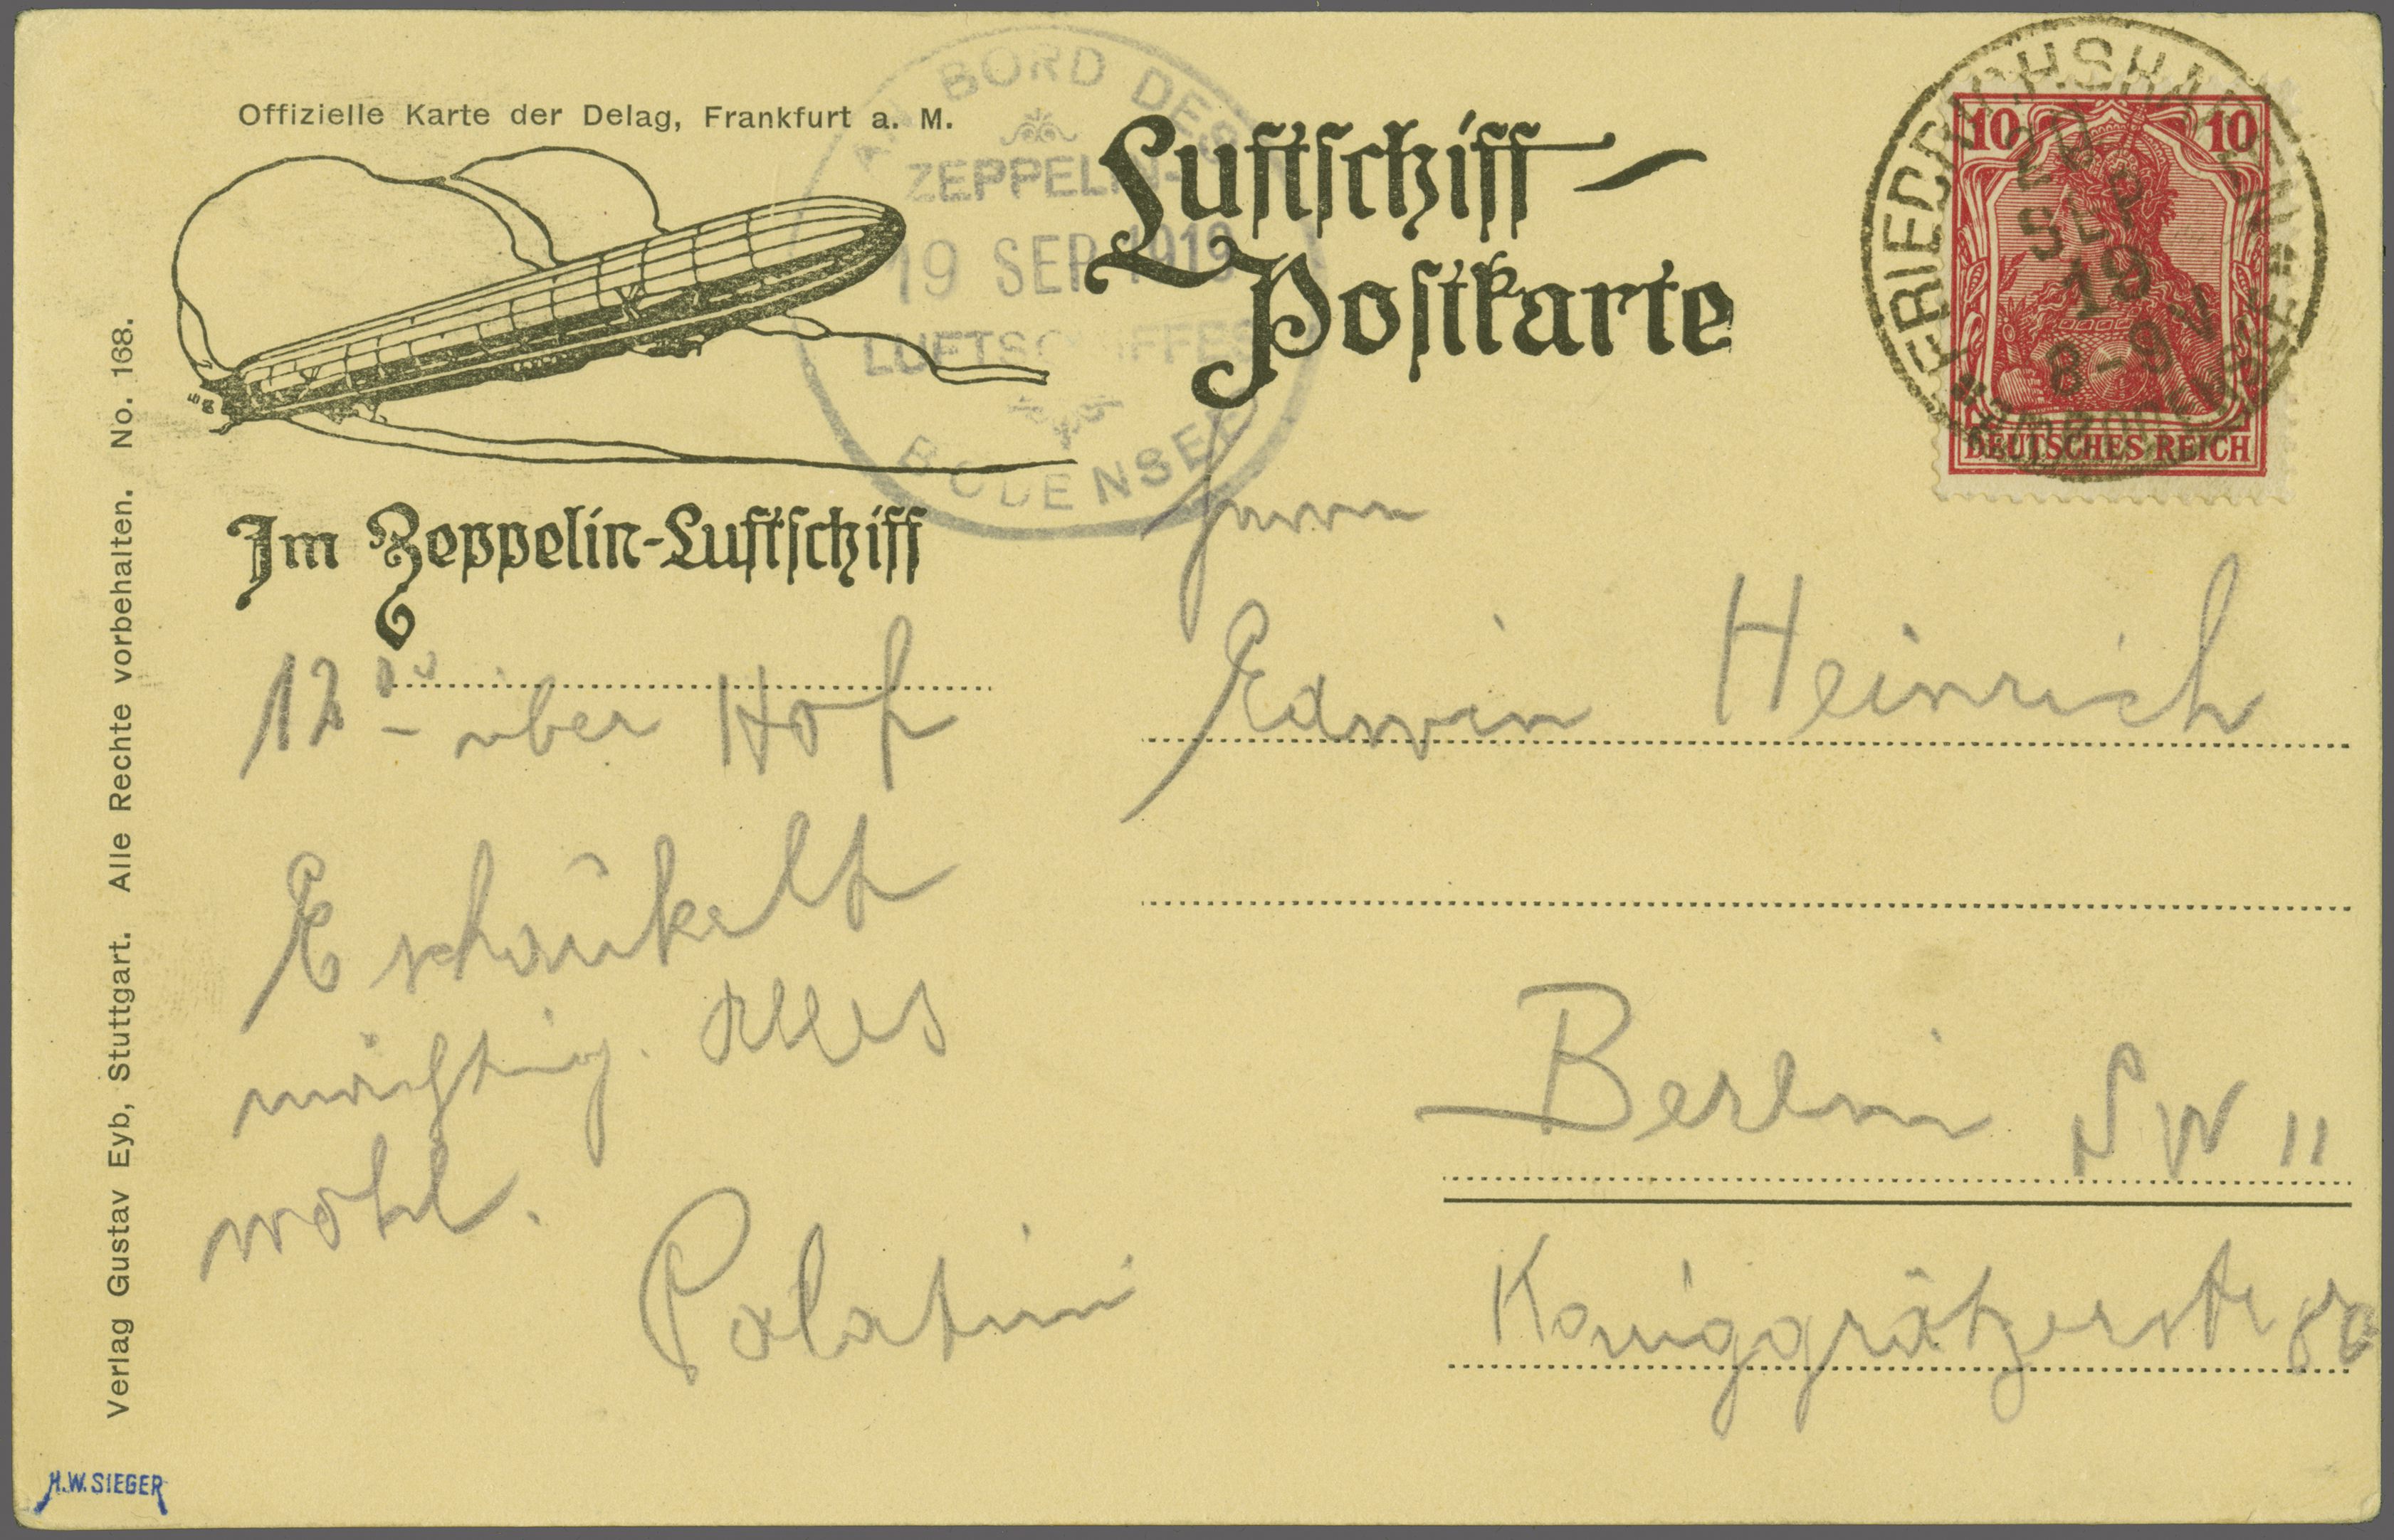 Offizielle Karte der Delag, Frankfurt a. M.
AN BORD DES
ZEPPELIN-
19 SEP 1919
LUFTSCHIFFES
BODENSEE
Luftschiff-
Postkarte
FRIEDRICHSHAFEN
20 SEP 19
8-9V
10 10
DEUTSCHES REICH
Im Zeppelin-Luftschiff
12 00 über Hof
E schaukelt
mächtig. Alles
wohl.
Palatini
Herrn
Edwin Heinrich
Berlin SW 11
Königgrätzerstr
Verlag Gustav Eyb, Stuttgart. Alle Rechte vorbehalten. No. 168.
H.W. SIEGER